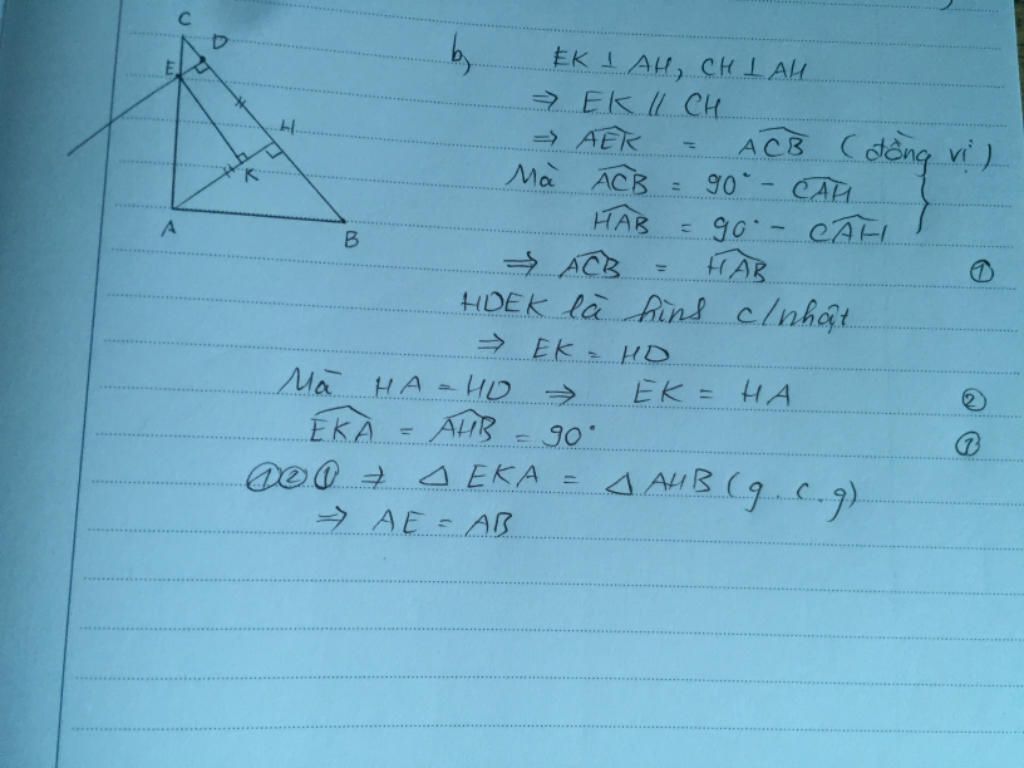 C
D
E
H
K
A
B
b,
EK ⊥ AH, CH ⊥ AH
⇒ EK // CH
⇒ \widehat{AEK} = \widehat{ACB} (đồng vị)
Mà \widehat{ACB} = 90° - \widehat{CAH}
\widehat{HAB} = 90° - \widehat{CAH}
⇒ \widehat{ACB} = \widehat{HAB} ①
HDEK là hình c/nhật
⇒ EK = HD
Mà HA = HD ⇒ EK = HA ②
\widehat{EKA} = \widehat{AHB} = 90° ①
①②① ⇒ △ EKA = △ AHB (g.c.g)
⇒ AE = AB